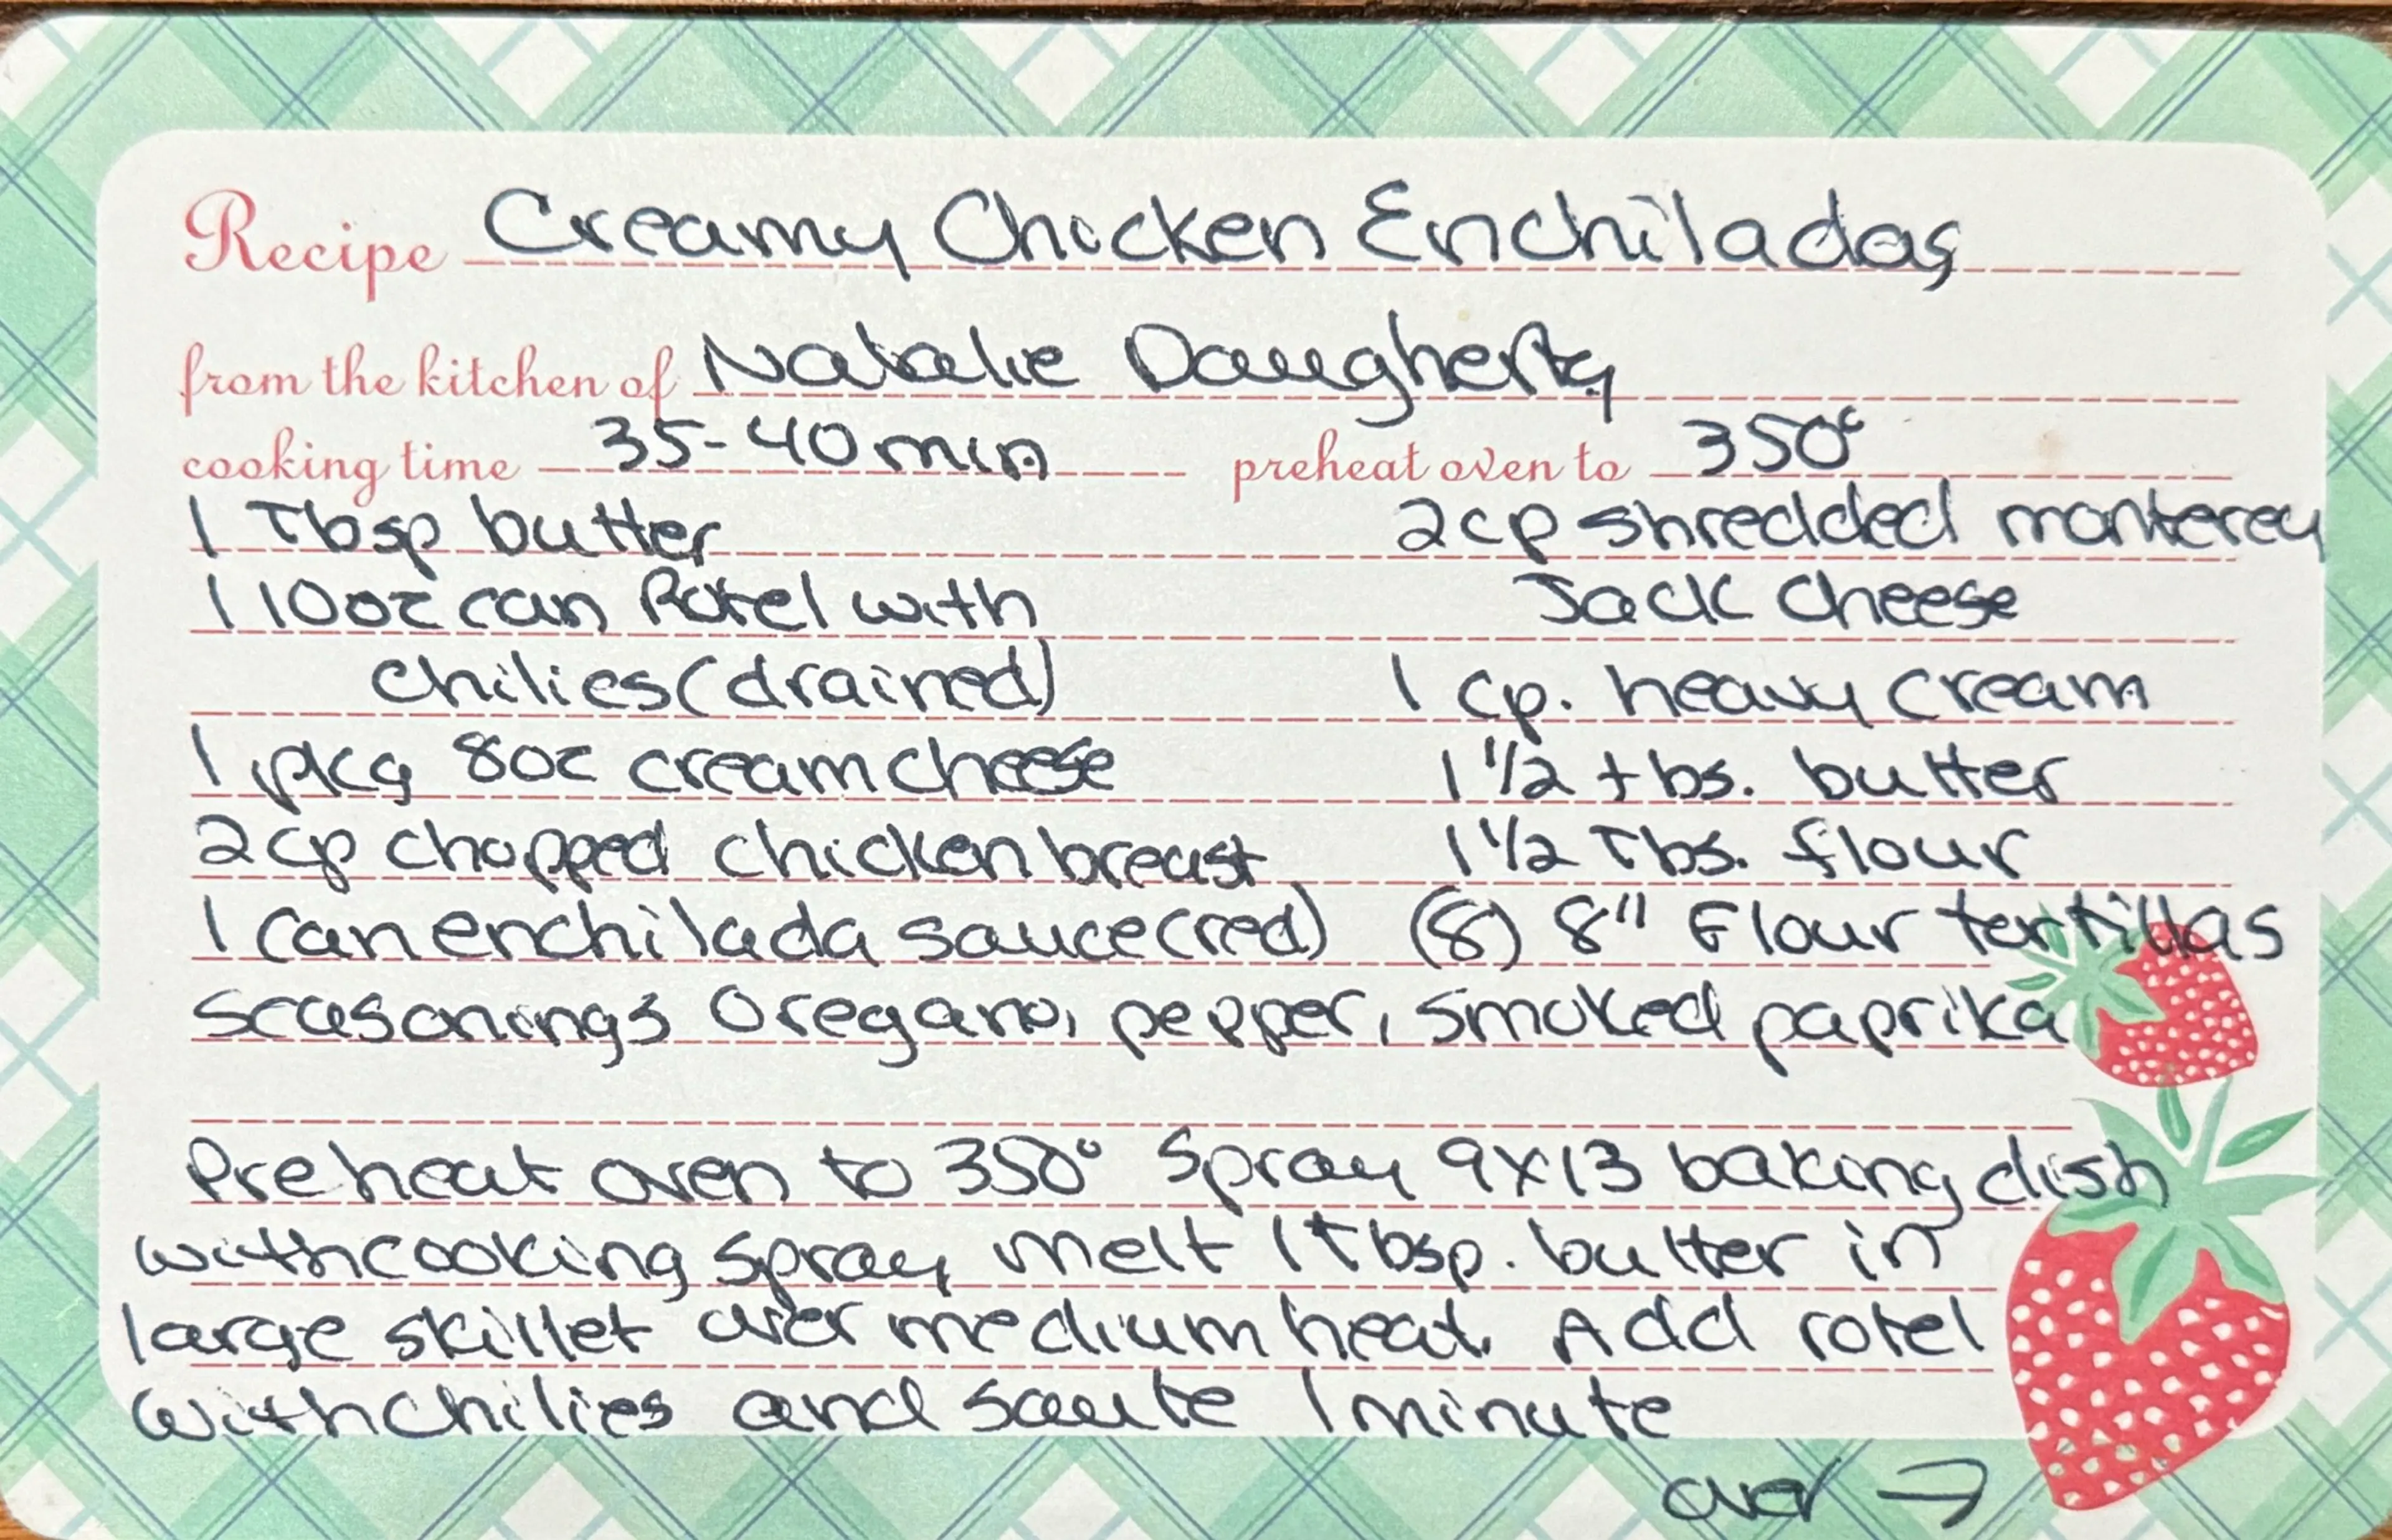 Recipe Creamy Chicken Enchiladas
from the kitchen of Natalie Daugherty
cooking time 35-40 min preheat oven to 350°
1 Tbsp butter 2 cp shredded monterey
1 10oz can Rotel with Jack Cheese
chilies (drained) 1 cp. heavy cream
1 pkg 8oz cream cheese 1 1/2 tbs. butter
2 cp chopped chicken breast 1 1/2 Tbs. flour
1 can enchilada sauce (red) (8) 8" Flour tortillas
seasonings Oregano, pepper, smoked paprika
Preheat oven to 350° Spray 9x13 baking dish
with cooking spray melt 1 tbsp. butter in
large skillet over medium heat. Add rotel
with chilies and saute 1 minute
over →